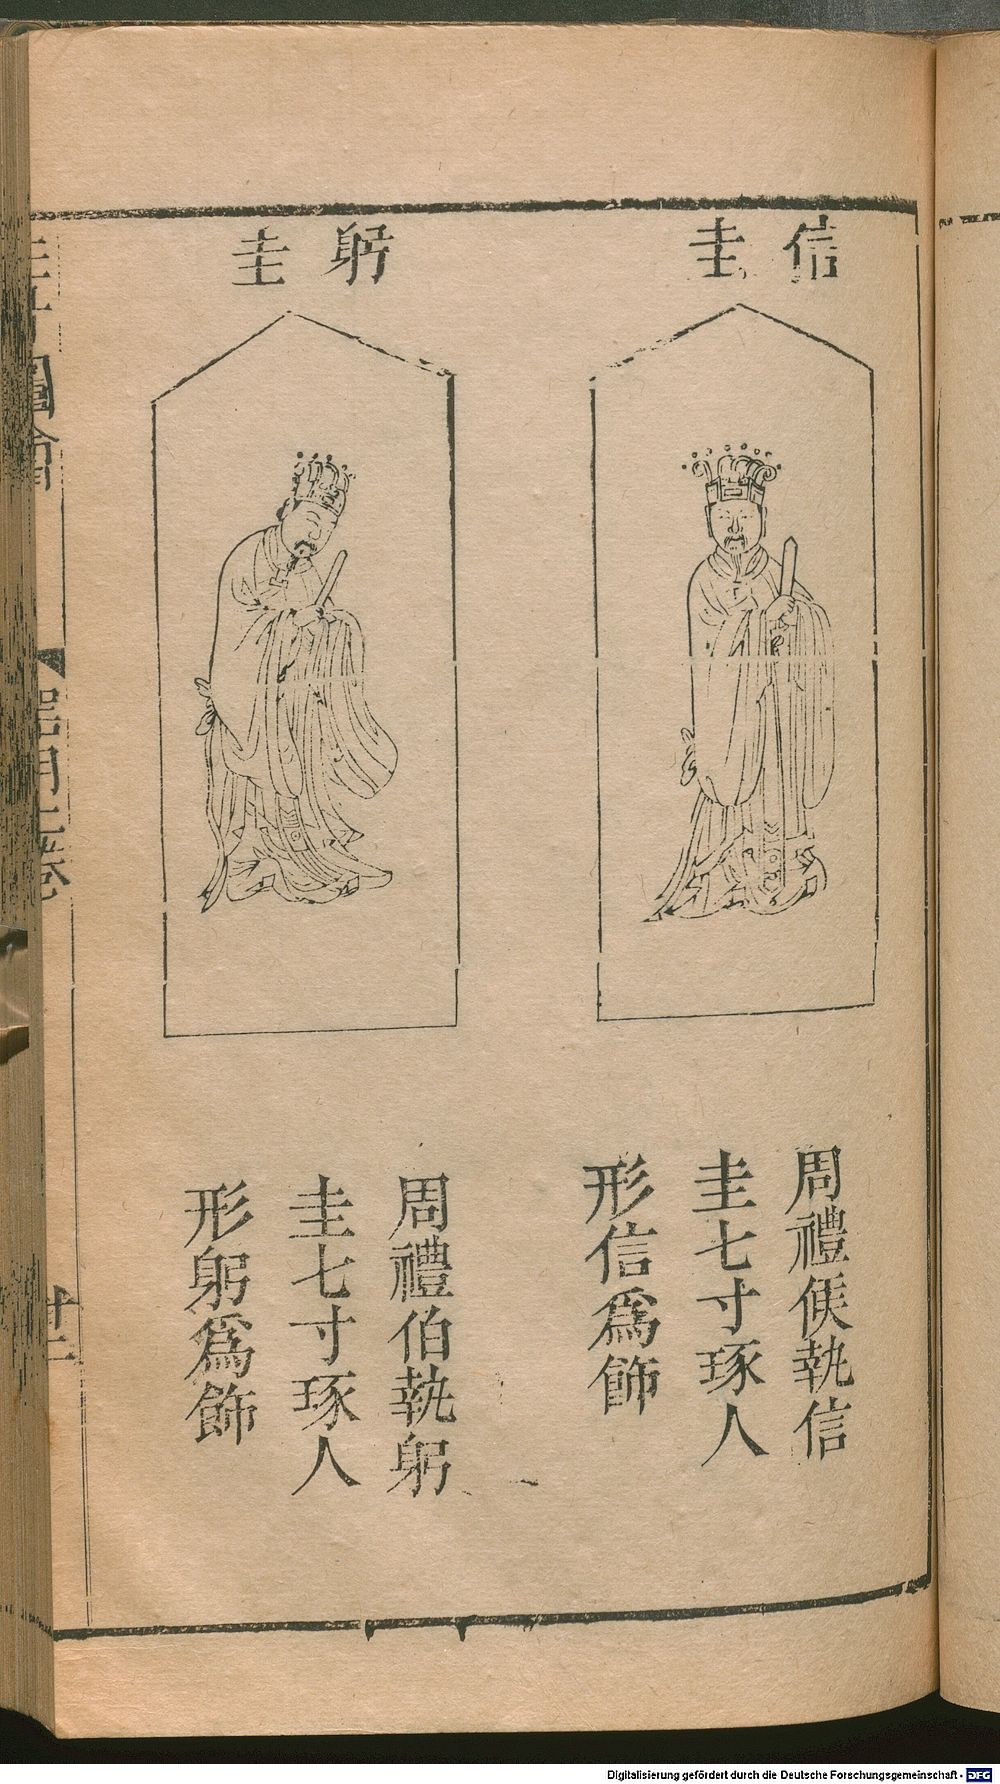 信圭
周禮侯執信
圭七寸琢人
形信爲飾
躬圭
周禮伯執躬
圭七寸琢人
形躬爲飾
器用上卷
Digitalisierung gefördert durch die Deutsche Forschungsgemeinschaft - DFG